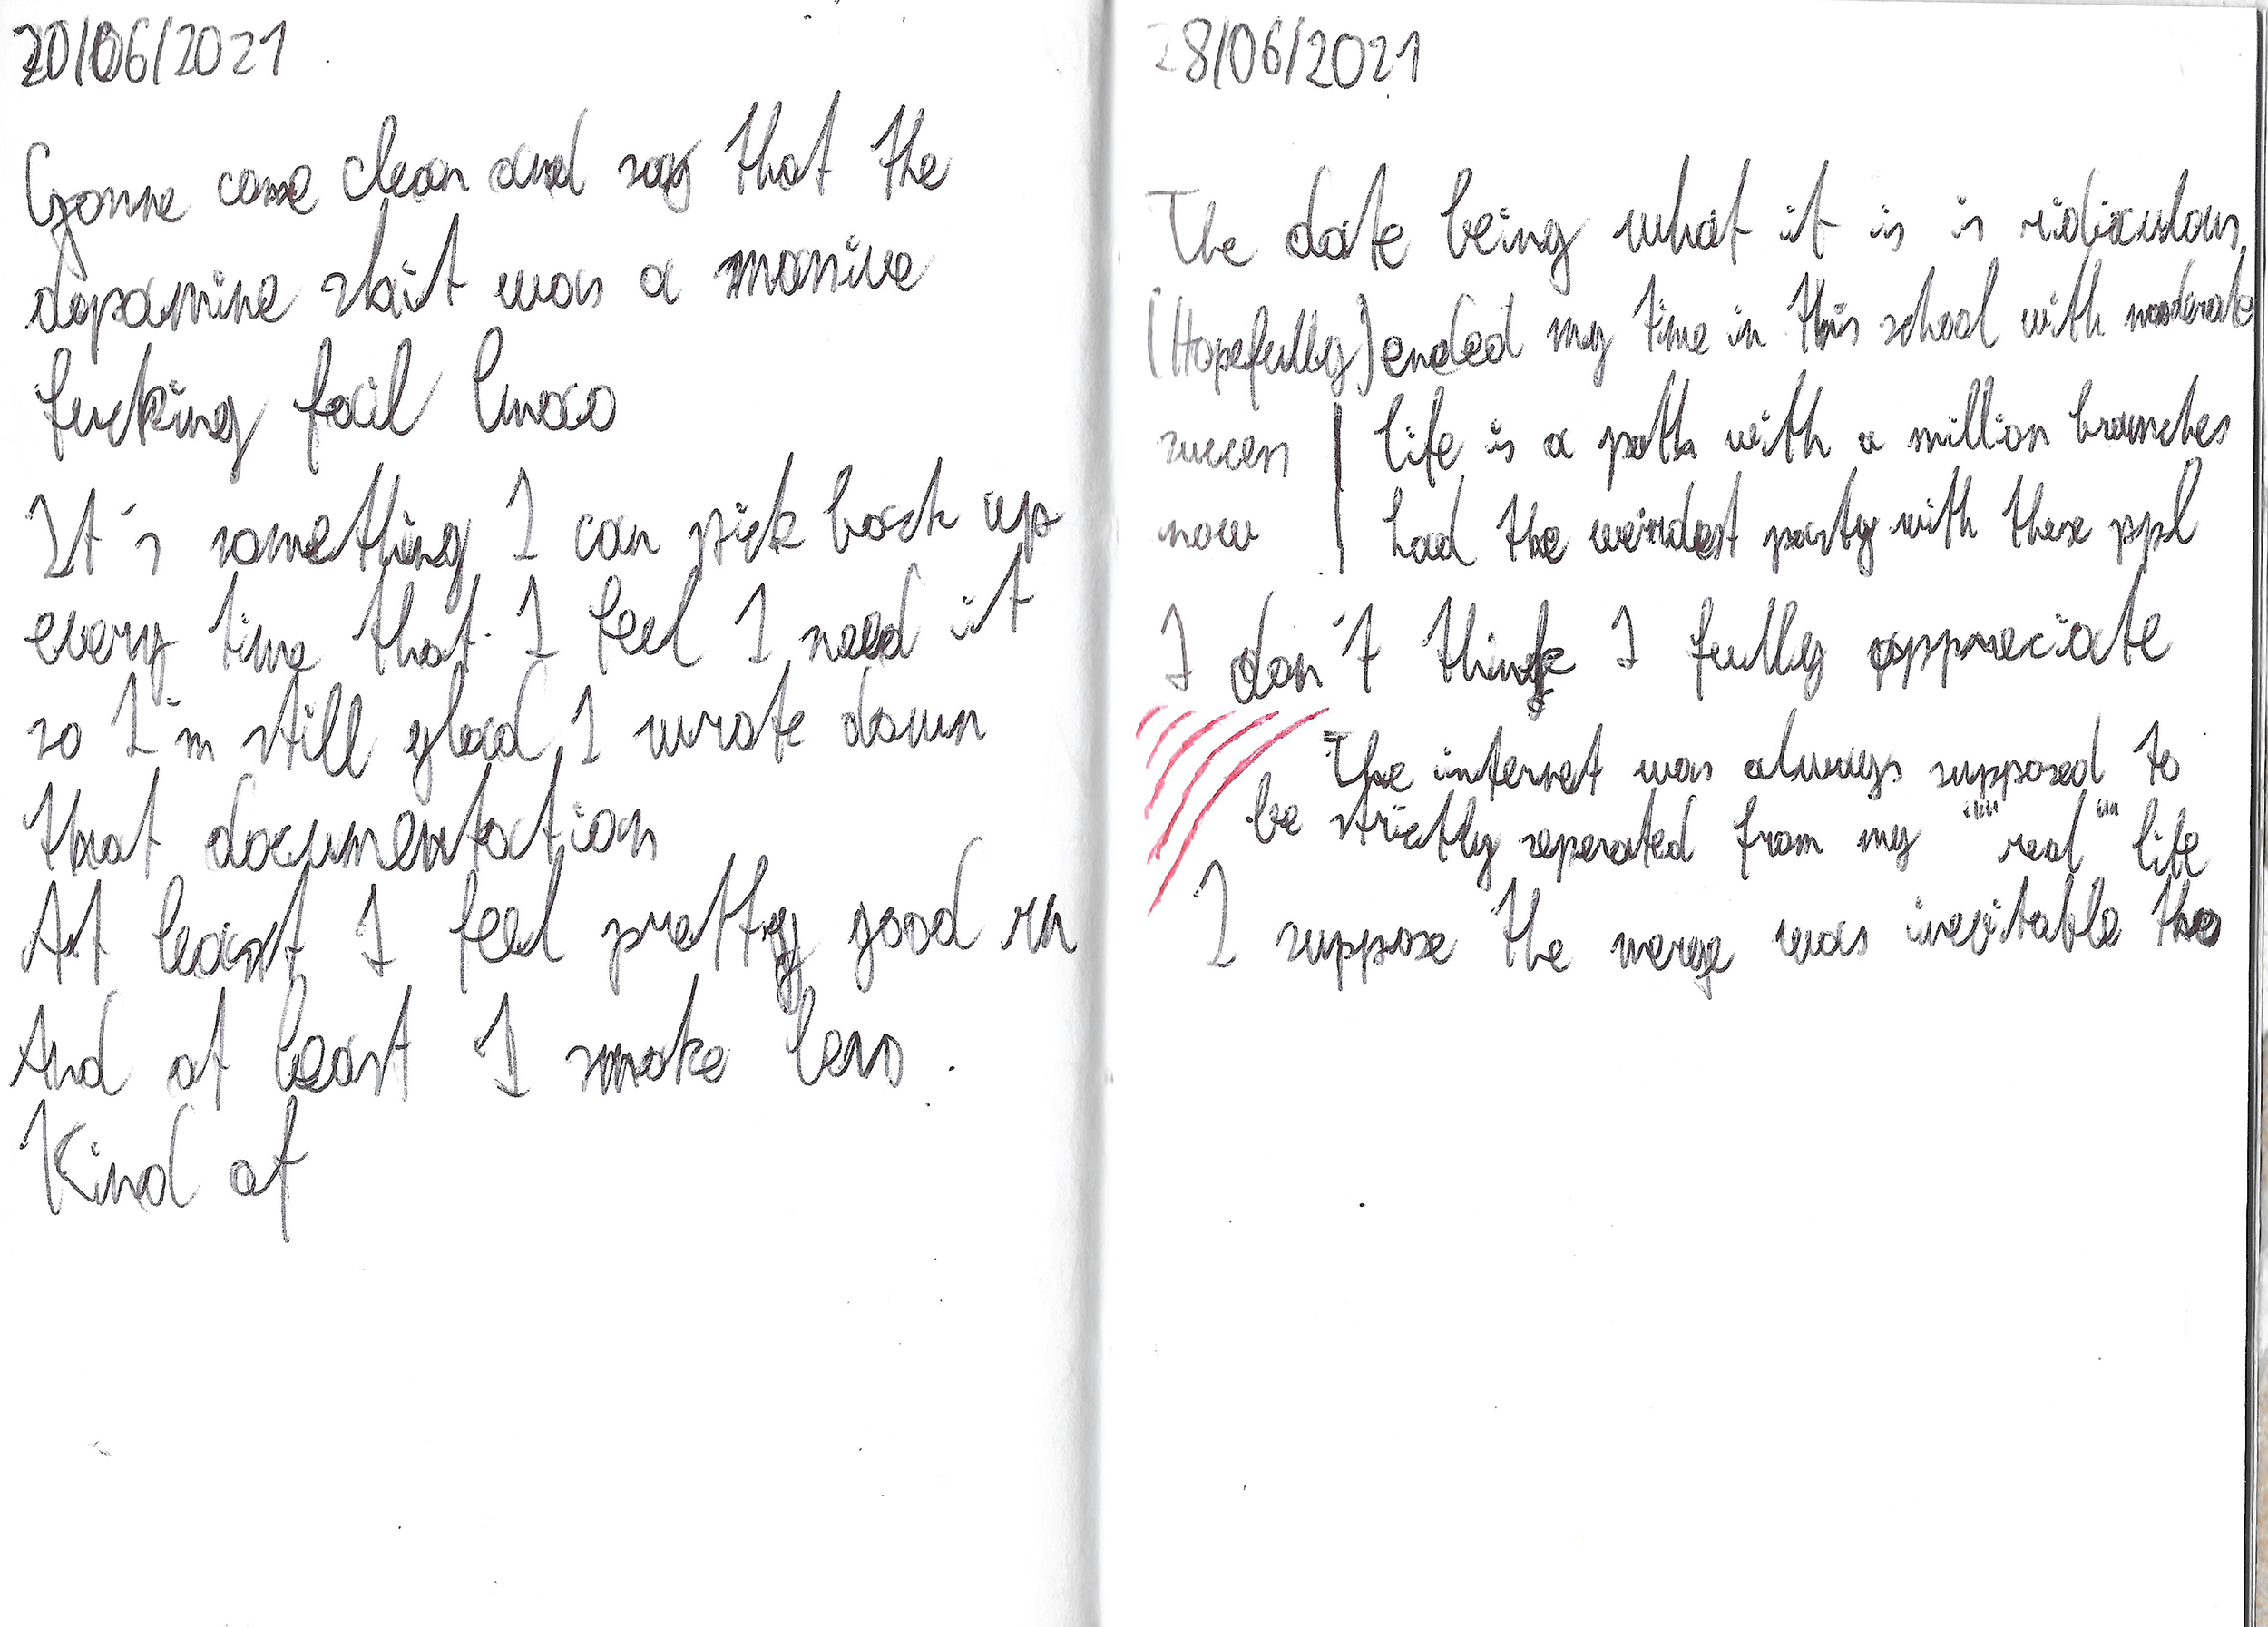 20/06/2021
Gonna come clean and say that the
dopamine shit was a massive
fucking fail lmaoo
It's something I can pick back up
every time that I feel I need it
so I'm still glad I wrote down
that documentation
At least I feel pretty good rn
And at least I smoke less.
Kind of
28/06/2021
The date being what it is is ridiculous
(Hopefully) ended my time in this school with moderate
success | life is a path with a million branches
now | had the weirdest party with these ppl
I don't think I fully appreciate
The internet was always supposed to
be strictly seperated from my """real""" life
I suppose the merge was inevitable tho